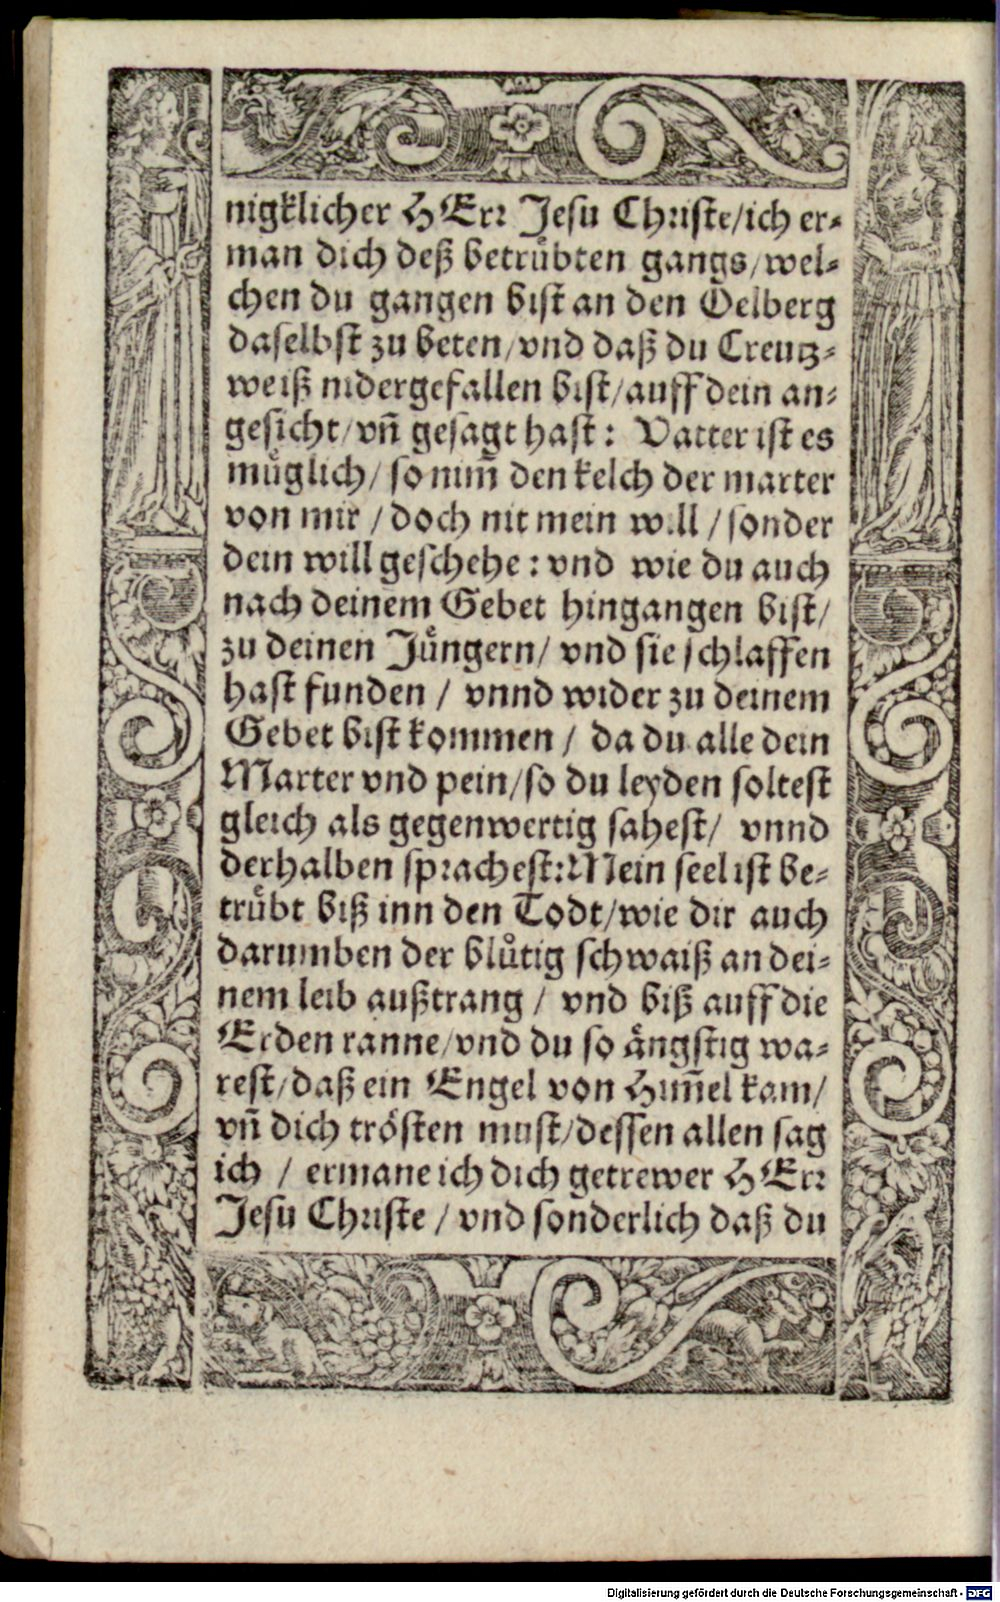 nigklicher HErr Jesu Christe/ich er-
man dich deß betrübten gangs/wel-
chen du gangen bist an den Oelberg
daselbst zu beten/vnd daß du Creutz-
weiß nidergefallen bist/auff dein an-
gesicht/vñ gesagt hast: Vatter ist es
müglich/ so nim̃ den kelch der marter
von mir / doch nit mein will / sonder
dein will geschehe: vnd wie du auch
nach deinem Gebet hingangen bist/
zu deinen Jüngern/ vnd sie schlaffen
hast funden / vnnd wider zu deinem
Gebet bist kommen / da du alle dein
Marter vnd pein/so du leyden soltest
gleich als gegenwertig sahest/ vnnd
derhalben sprachest: Mein seel ist be-
trübt biß inn den Todt/wie dir auch
darumben der blůtig schwaiß an dei-
nem leib außtrang / vnd biß auff die
Erden ranne/vnd du so ängstig wa-
rest/daß ein Engel von Him̃el kam/
vñ dich trösten must/dessen allen sag
ich / ermane ich dich getrewer HErr
Jesu Christe / vnd sonderlich daß du
Digitalisierung gefördert durch die Deutsche Forschungsgemeinschaft - DFG